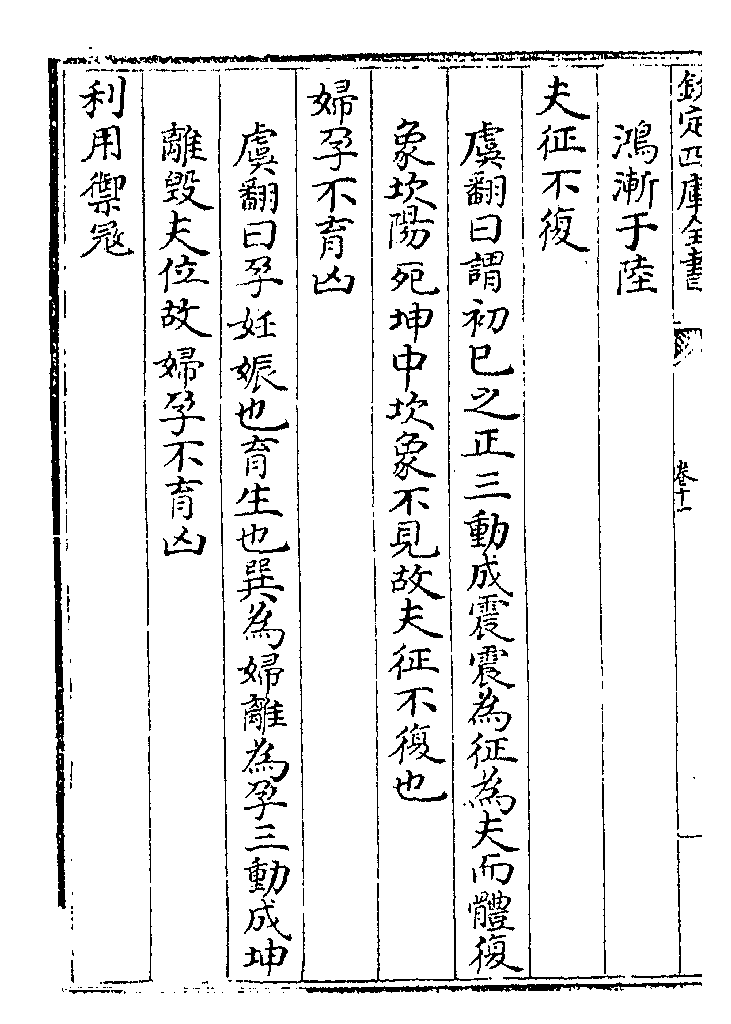 欽定四庫全書
卷十一
鴻漸于陸
夫征不復
虞翻曰謂初已之正三動成震震為征為夫而體復
象坎陽死坤中坎象不見故夫征不復也
婦孕不育凶
虞翻曰孕妊娠也育生也巽為婦離為孕三動成坤
離毀夫位故婦孕不育凶
利用禦冦